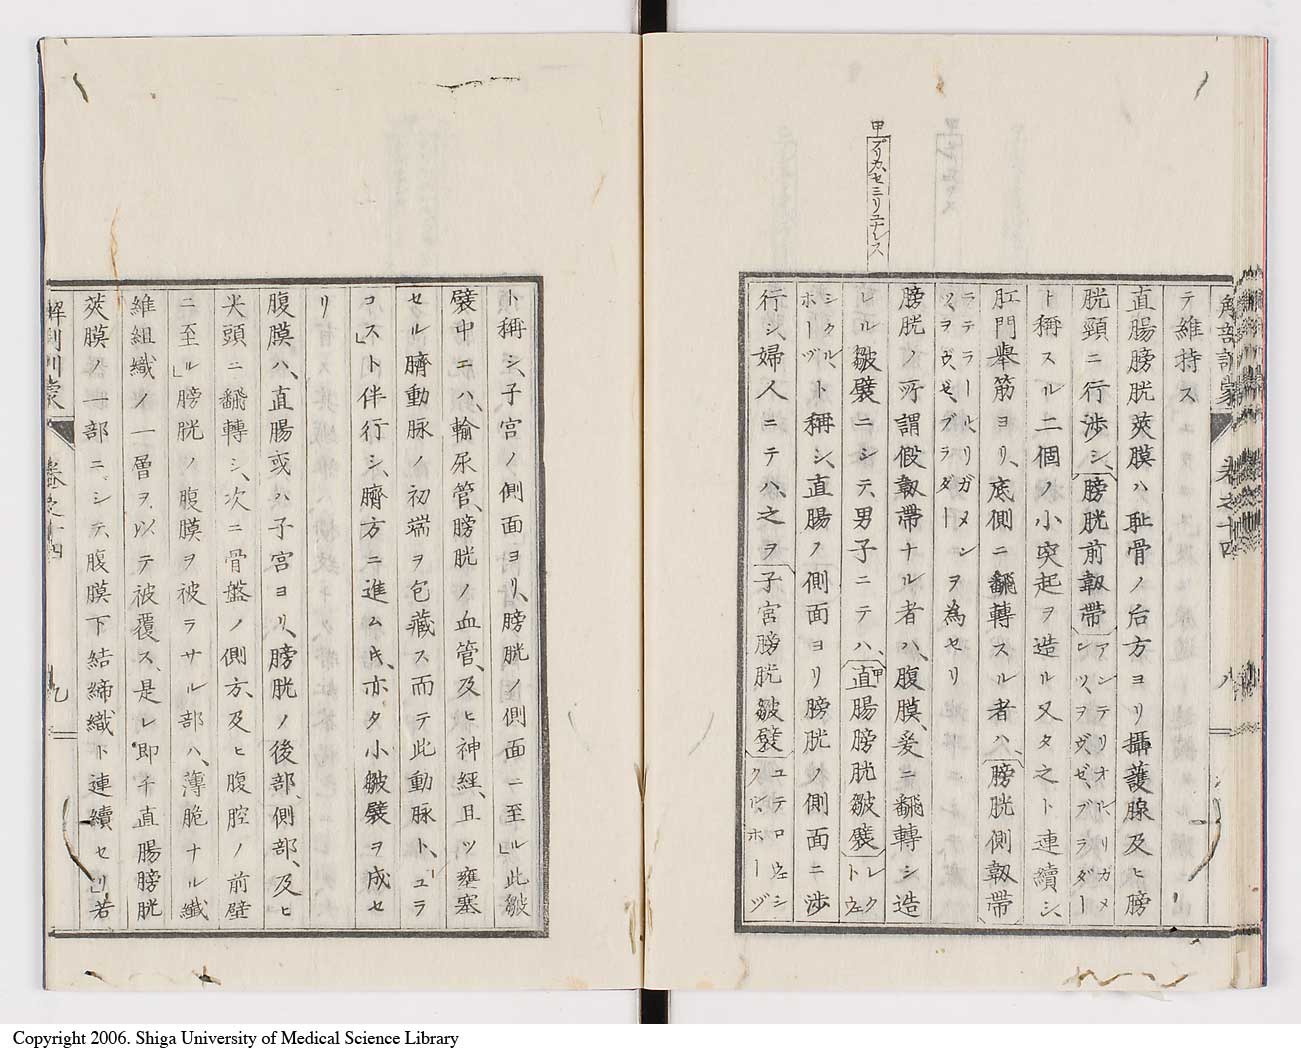 甲プリカ、セミリユナレス
解剖訓蒙 巻之十四 八
テ維持ス
直腸膀胱莢膜ハ耻骨ノ后方ヨリ攝護腺及ヒ膀
胱頸ニ行渉シ、膀胱前韌帶アンテリオル、リガメンツ、ヲヴ、ゼ、ブラダー
ト稱スル二個ノ小突起ヲ造ル又タ之ト連續シ、
肛門舉筋ヨリ、底側ニ飜轉スル者ハ、膀胱側韌帶
ラテラール、リガメンツ、ヲヴ、ゼ、ブラダーヲ為セリ
膀胱ノ所謂假韌帶ナル者ハ、腹膜、爰ニ飜轉シ造
レル皺襞ニシテ、男子ニテハ、甲直腸膀胱皺襞レクトヱシクル、ホーヅ、
ト稱シ、直腸ノ側面ヨリ膀胱ノ側面ニ渉
行シ、婦人ニテハ、之ヲ子宮膀胱皺襞ユテロヱシクル、ホーヅ
ト稱シ、子宮ノ側面ヨリ、膀胱ノ側面ニ至ル」此皺
襞中ニハ、輸尿管、膀胱ノ血管、及ヒ神經、且ツ壅塞
セル臍動脉ノ初端ヲ包藏ス而テ此動脉ト、ユラ
コ」スト伴行シ、臍方ニ進ムキ、亦タ小皺襞ヲ成セ
リ
腹膜ハ、直腸或ハ子宮ヨリ、膀胱ノ後部、側部、及ヒ
尖頭ニ飜轉シ、次ニ骨盤ノ側方、及ヒ腹腔ノ前壁
ニ至ル」膀胱ノ腹膜ヲ被ラサル部ハ、薄脆ナル纖
維組織ノ一層ヲ以テ被覆ス、是レ即チ直腸膀胱
莢膜ノ一部ニシテ、腹膜下結締織ト連續セリ」若
解剖訓蒙 巻之十四 九